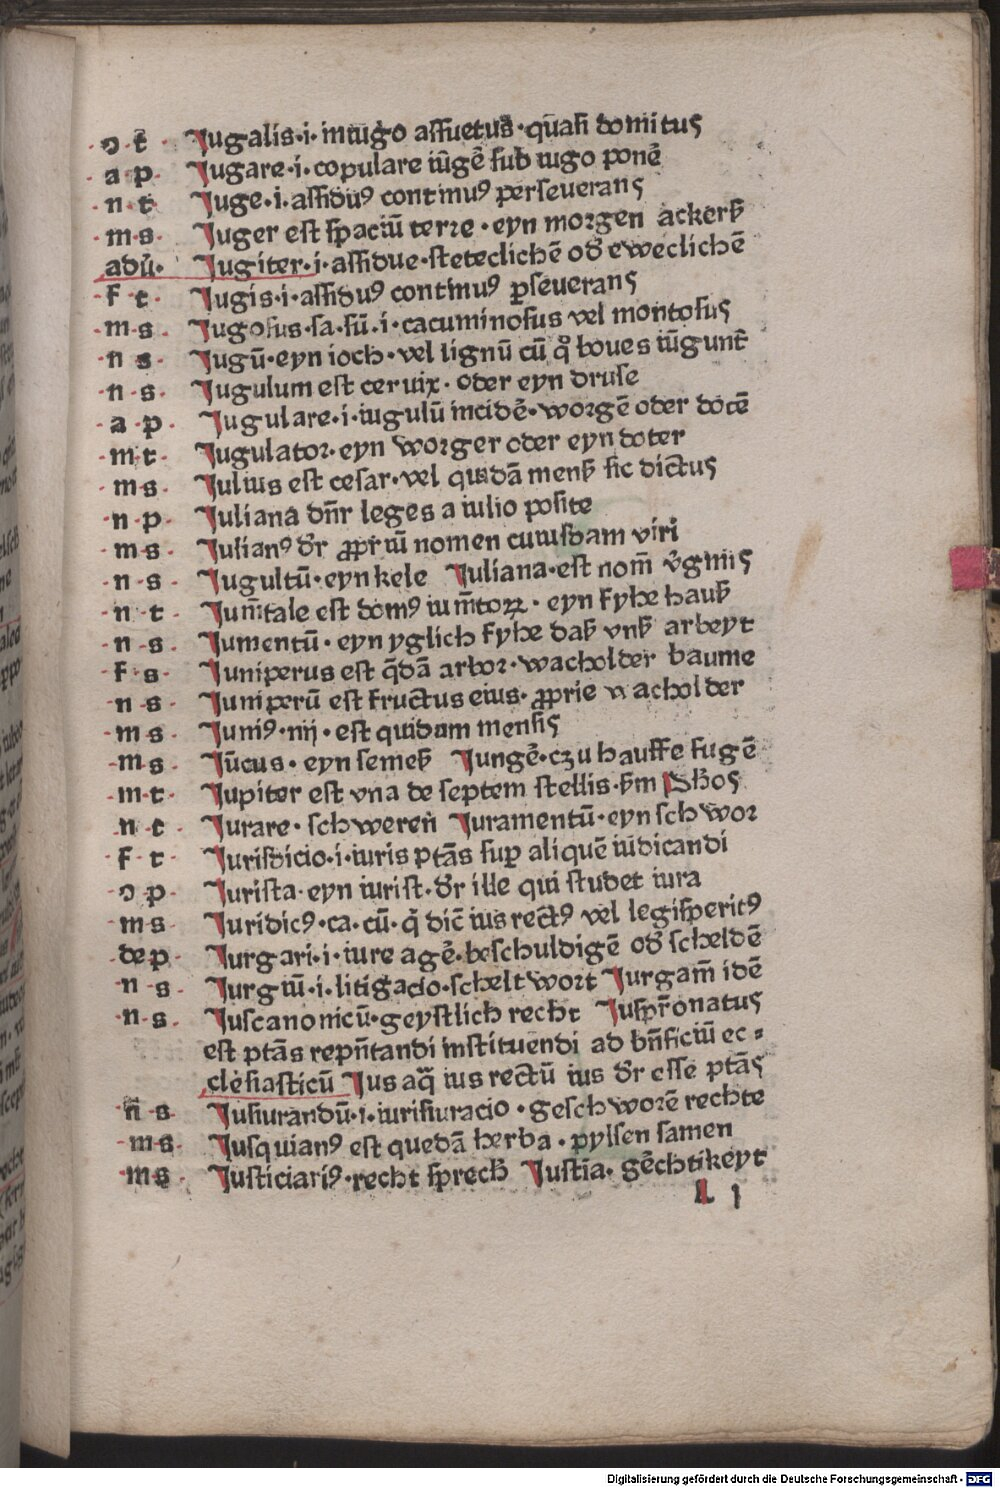 ɔ t̄ Jugalis·i·iniūgo aſſuetus·quaſi domitus
a p Jugare·i·copulare iūgē ſub iugo ponē
n t Juge·i·aſſiduꝰ continuꝰ perſeverans
m s Juger eſt ſpaciū terre·eyn morgen ackerß
adū· Jugiter·i·aſſidue·ſteteclichē od̄ eweclichē
f t Jugis·i·aſſiduꝰ continuꝰ ꝑſeverans
m s Jugoſus·ſa·ſū·i·cacuminoſus vel montoſus
n s Jugū·eyn ioch·vel lignū cū q̊ boues iūgunt̄
n s Jugulum eſt ceruix·oder eyn druſe
a p Jugulare·i·iugulū incidē·worgē oder dotē
m t Jugulator·eyn worger oder eyn doter
m s Julius eſt ceſar·vel quidā menß ſic dictus
n p Juliana dn̄r leges a iulio poſite
m s Julianꝰ dr̄ ꝓpriū nomen cuiuſdam viri
n s Jugultū·eyn kele Juliana·eſt nom̄ v̄ginis
n t Jum̄tale eſt domꝰ ium̄toꝝ·eyn fyhe hauß
n s Jumentū·eyn yglich fyhe daß vnß arbeyt
f s Juniperus eſt q̄dā arbor·wacholder baume
n s Juniperū eſt fructus eius·ꝓprie wacholder
m s Juniꝰ·nij·eſt quidam menſis
m s Jūcus·eyn ſemeß Jungē·czu hauffe fugē
m t Jupiter eſt vna de ſeptem ſtellis·ẜm Phos
n t Jurare·ſchweren Juramentū·eyn ſchwor
f t Juriſdicio·i·iuris ptās ſuꝑ aliquē iudicandi
ɔ p Juriſta·eyn iuriſt·dr̄ ille qui ſtudet iura
m s Juridicꝰ·ca·cū·q̇ dic̄ ius rectꝰ vel legiſperitꝰ
de p Jurgari·i·iure agē·beſchuldigē od̄ ſcheldē
n s Jurgiū·i·litigacio·ſchelt wort Jurgam̄ idē
n s Juſcanonicū·geyſtlich recht Juſpr̄onatus
eſt ptās repn̄tandi inſtituendi ad bn̄ficiū ec⸗
cleſiaſticū Jus aq̄ ius rectū ius dr̄ eſſe ptās
n s Juſiurandū·i·iuriſiuracio·geſchworē rechte
m s Juſquianꝰ eſt quedā herba·pylſen ſamen
m s Juſticiariꝰ·recht ſprech̄ Juſtia·gēchtikeyt
L j
Digitalisierung gefördert durch die Deutsche Forschungsgemeinschaft - DFG